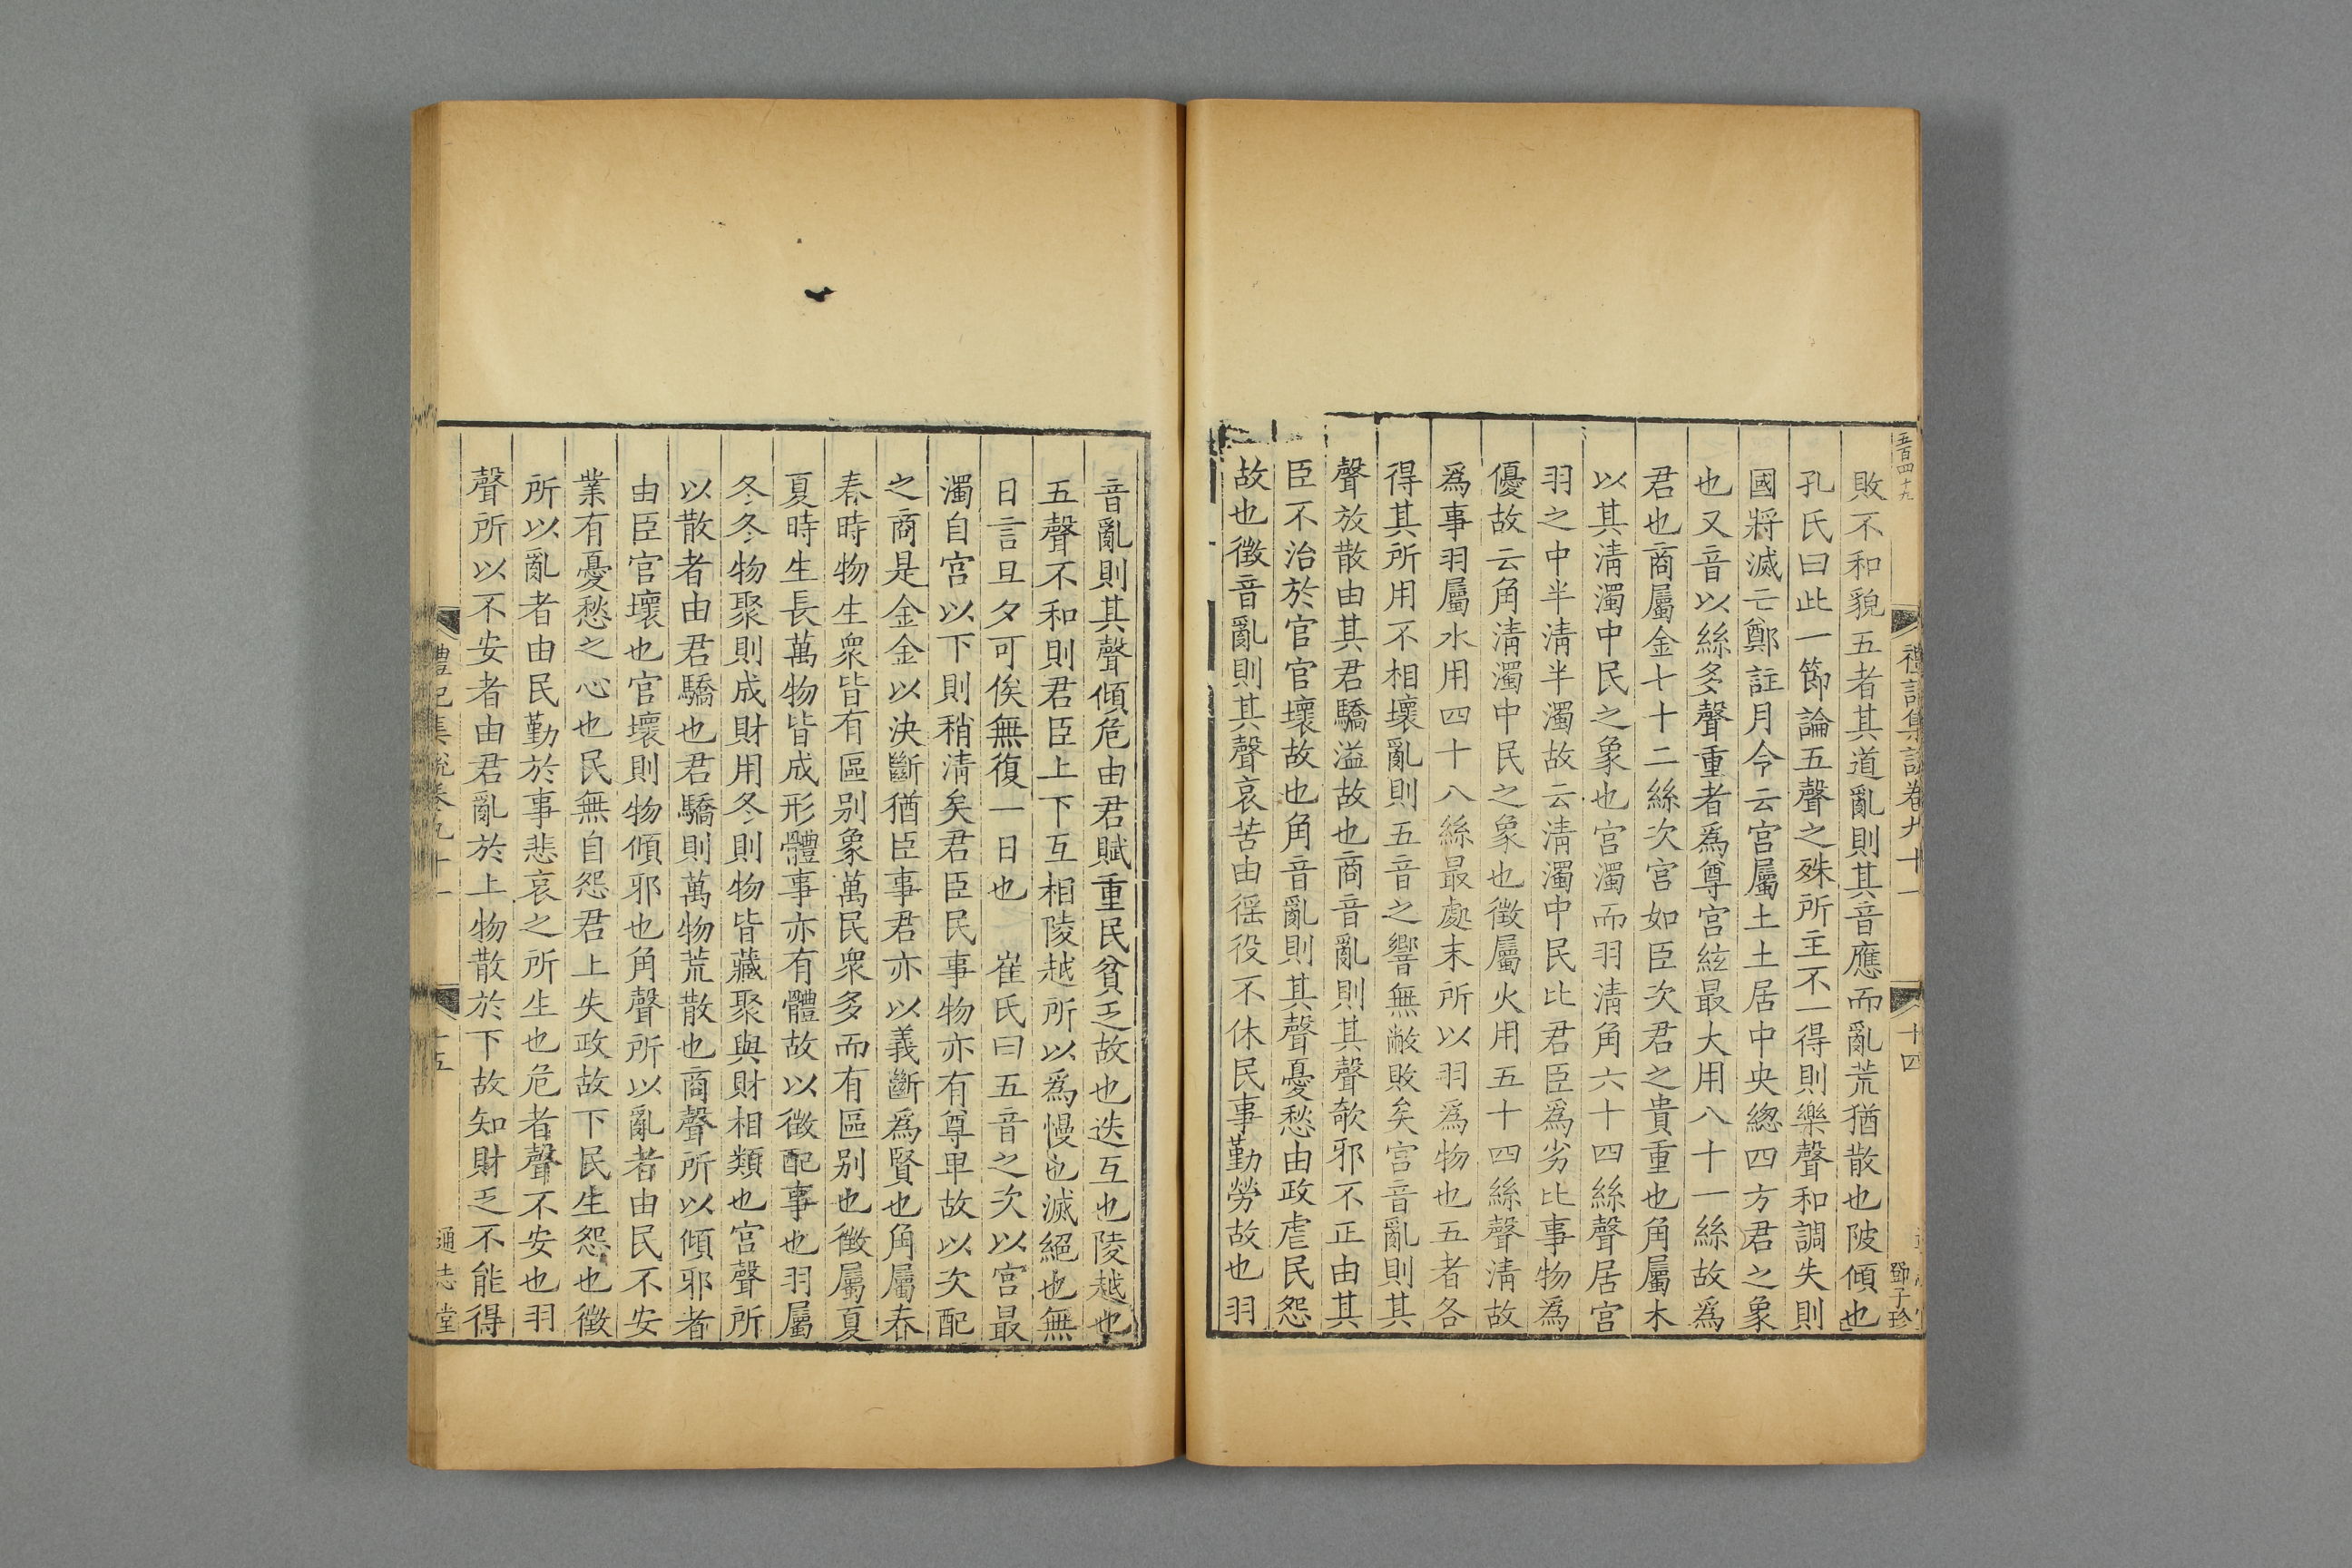 五百四十九
禮記集說卷九十一
十四
鄧子珍
敗不和貌五者其道亂則其音應而亂荒猶散也陂傾也
孔氏曰此一節論五聲之殊所主不一得則樂聲和調失則
國將滅亡鄭註月令云宮屬土土居中央緫四方君之象
也又音以絲多聲重者爲尊宮絃最大用八十一絲故爲
君也商屬金七十二絲次宮如臣次君之貴重也角屬木
以其淸濁中民之象也宮濁而羽淸角六十四絲聲居宮
羽之中半淸半濁故云淸濁中民比君臣爲劣比事物爲
優故云角淸濁中民之象也徵屬火用五十四絲聲淸故
爲事羽屬水用四十八絲最處末所以羽爲物也五者各
得其所用不相壞亂則五音之響無敝敗矣宮音亂則其
聲放散由其君驕溢故也商音亂則其聲欹邪不正由其
臣不治於官官壞故也角音亂則其聲憂愁由政虐民怨
故也徵音亂則其聲哀苦由徭役不休民事勤勞故也羽
音亂則其聲傾危由君賦重民貧乏故也迭互也陵越也
五聲不和則君臣上下互相陵越所以爲慢也滅絕也無
日言旦夕可俟無復一日也　崔氏曰五音之次以宮最
濁自宮以下則稍淸矣君臣民事物亦有尊卑故以次配
之商是金金以決斷猶臣事君亦以義斷爲賢也角屬春
春時物生衆皆有區别象萬民衆多而有區别也徵屬夏
夏時生長萬物皆成形體事亦有體故以徵配事也羽屬
冬冬物聚則成財用冬則物皆藏聚與財相類也宮聲所
以散者由君驕也君驕則萬物荒散也商聲所以傾邪者
由臣官壞也官壞則物傾邪也角聲所以亂者由民不安
業有憂愁之心也民無自怨君上失政故下民生怨也徵
所以亂者由民勤於事悲哀之所生也危者聲不安也羽
聲所以不安者由君亂於上物散於下故知財乏不能得
禮記集說卷九十一
十五
通志堂